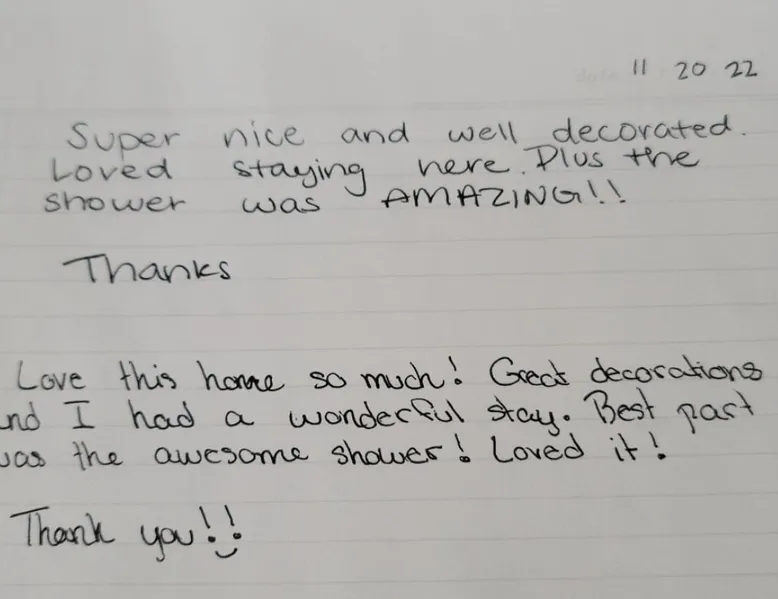 11 20 22
Super nice and well decorated.
Loved staying here. Plus the
shower was AMAZING!!
Thanks
Love this home so much! Great decorations
nd I had a wonderful stay. Best part
was the awesome shower! Loved it!
Thank you!!